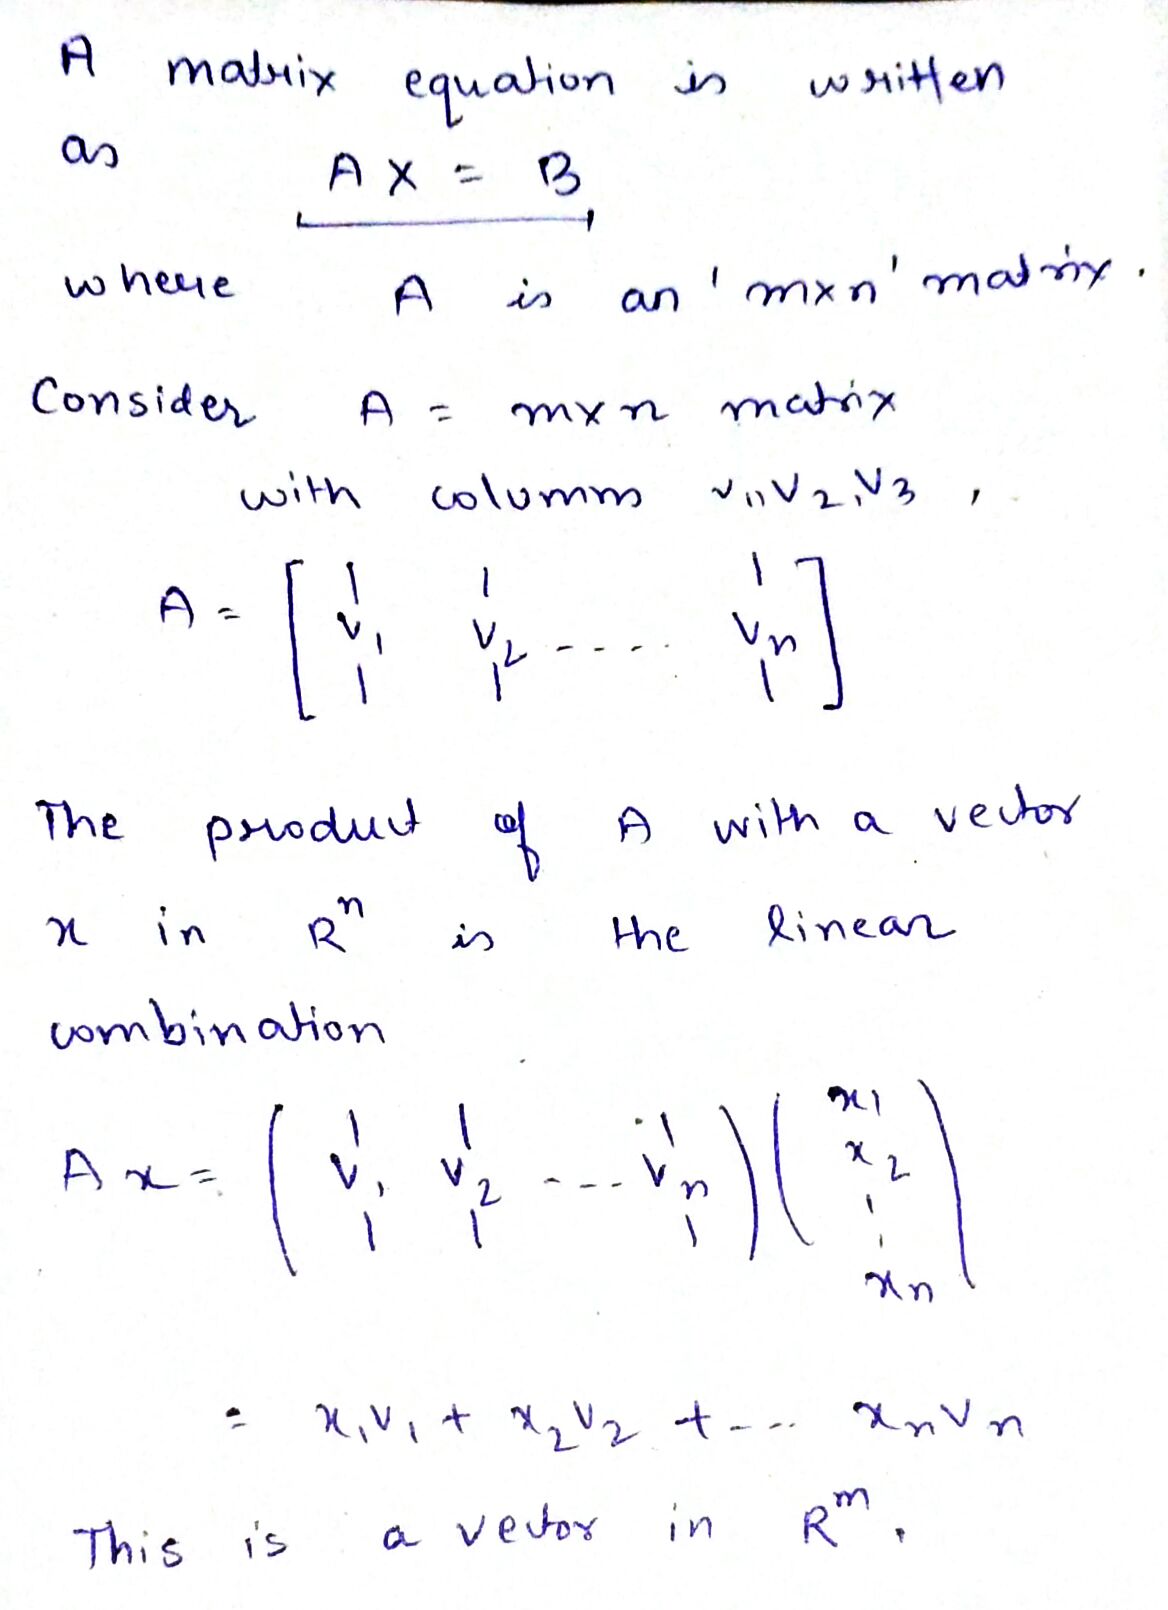 A matrix equation is written
as AX = B
where A is an 'mxn' matrix.
Consider A = mxn matrix
with columns v1, v2, v3,
A = [ | v1 | | v2 | ---- | vn | ]
The product of A with a vector
x in R^n is the linear
combination
Ax = ( | v1 | | v2 | ---- | vn | ) ( x1 x2 ⋮ xn )
= x1v1 + x2v2 + --- xnvn
This is a vector in R^m.